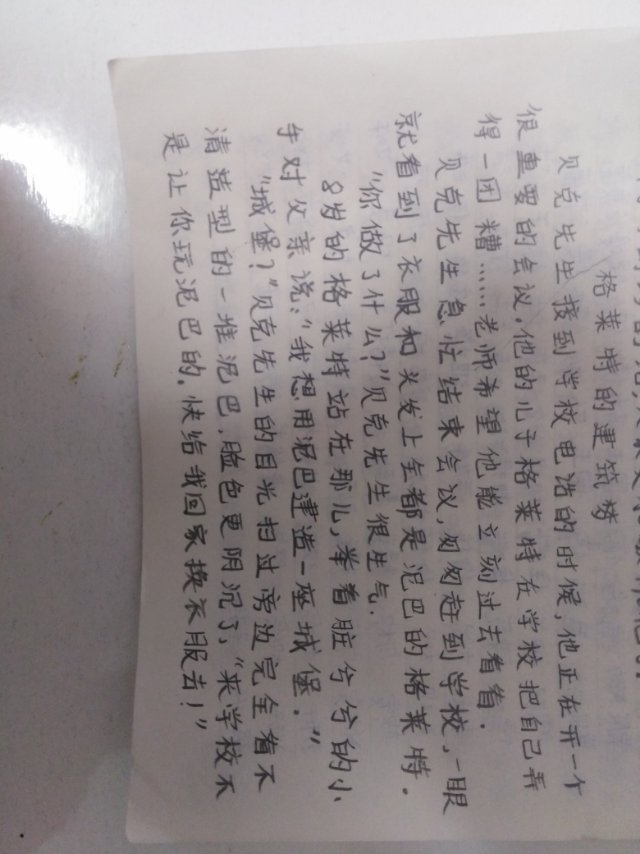 格莱特的建筑梦
贝克先生接到学校电话的时候，他正在开一个
很重要的会议。他的儿子格莱特在学校把自己弄
得一团糟……老师希望他能立刻过去看看.
贝克先生急忙结束会议，匆匆赶到学校，一眼
就看到了衣服和头发上全都是泥巴的格莱特.
“你做了什么？”贝克先生很生气.
8岁的格莱特站在那儿，举着脏兮兮的小
手对父亲说：“我想用泥巴建造一座城堡。”
“城堡？”贝克先生的目光扫过旁边完全看不
清造型的一堆泥巴，脸色更阴沉了，“来学校不
是让你玩泥巴的。快给我回家换衣服去！”